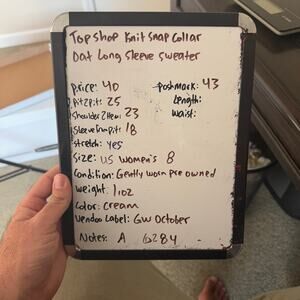 Topshop Knit Snap Collar
Oat Long Sleeve Sweater
Price: 40
Poshmark: 43
Pit2Pit: 25
Length:
Shoulder2Hem: 23
Waist:
Sleeve from pit: 18
Stretch: yes
Size: US Women's 8
Condition: Gently worn pre owned
Weight: 1 oz
Color: Cream
Vendoo Label: GW October
Notes: A